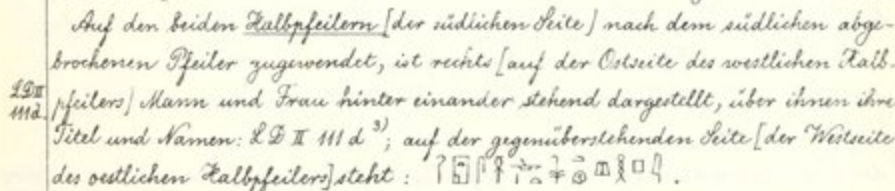 Auf den beiden Halbpfeilern [der südlichen Seite] nach dem südlichen abge-
brochenen Pfeiler zugewendet, ist rechts [auf der Ostseite des westlichen Halb-
LD II
111d.
pfeilers] Mann und Frau hinter einander stehend dargestellt, über ihnen ihre
Titel und Namen: L D II 111 d ³⁾; auf der gegenüberstehenden Seite [der Westseite
des oestlichen Halbpfeilers] steht :